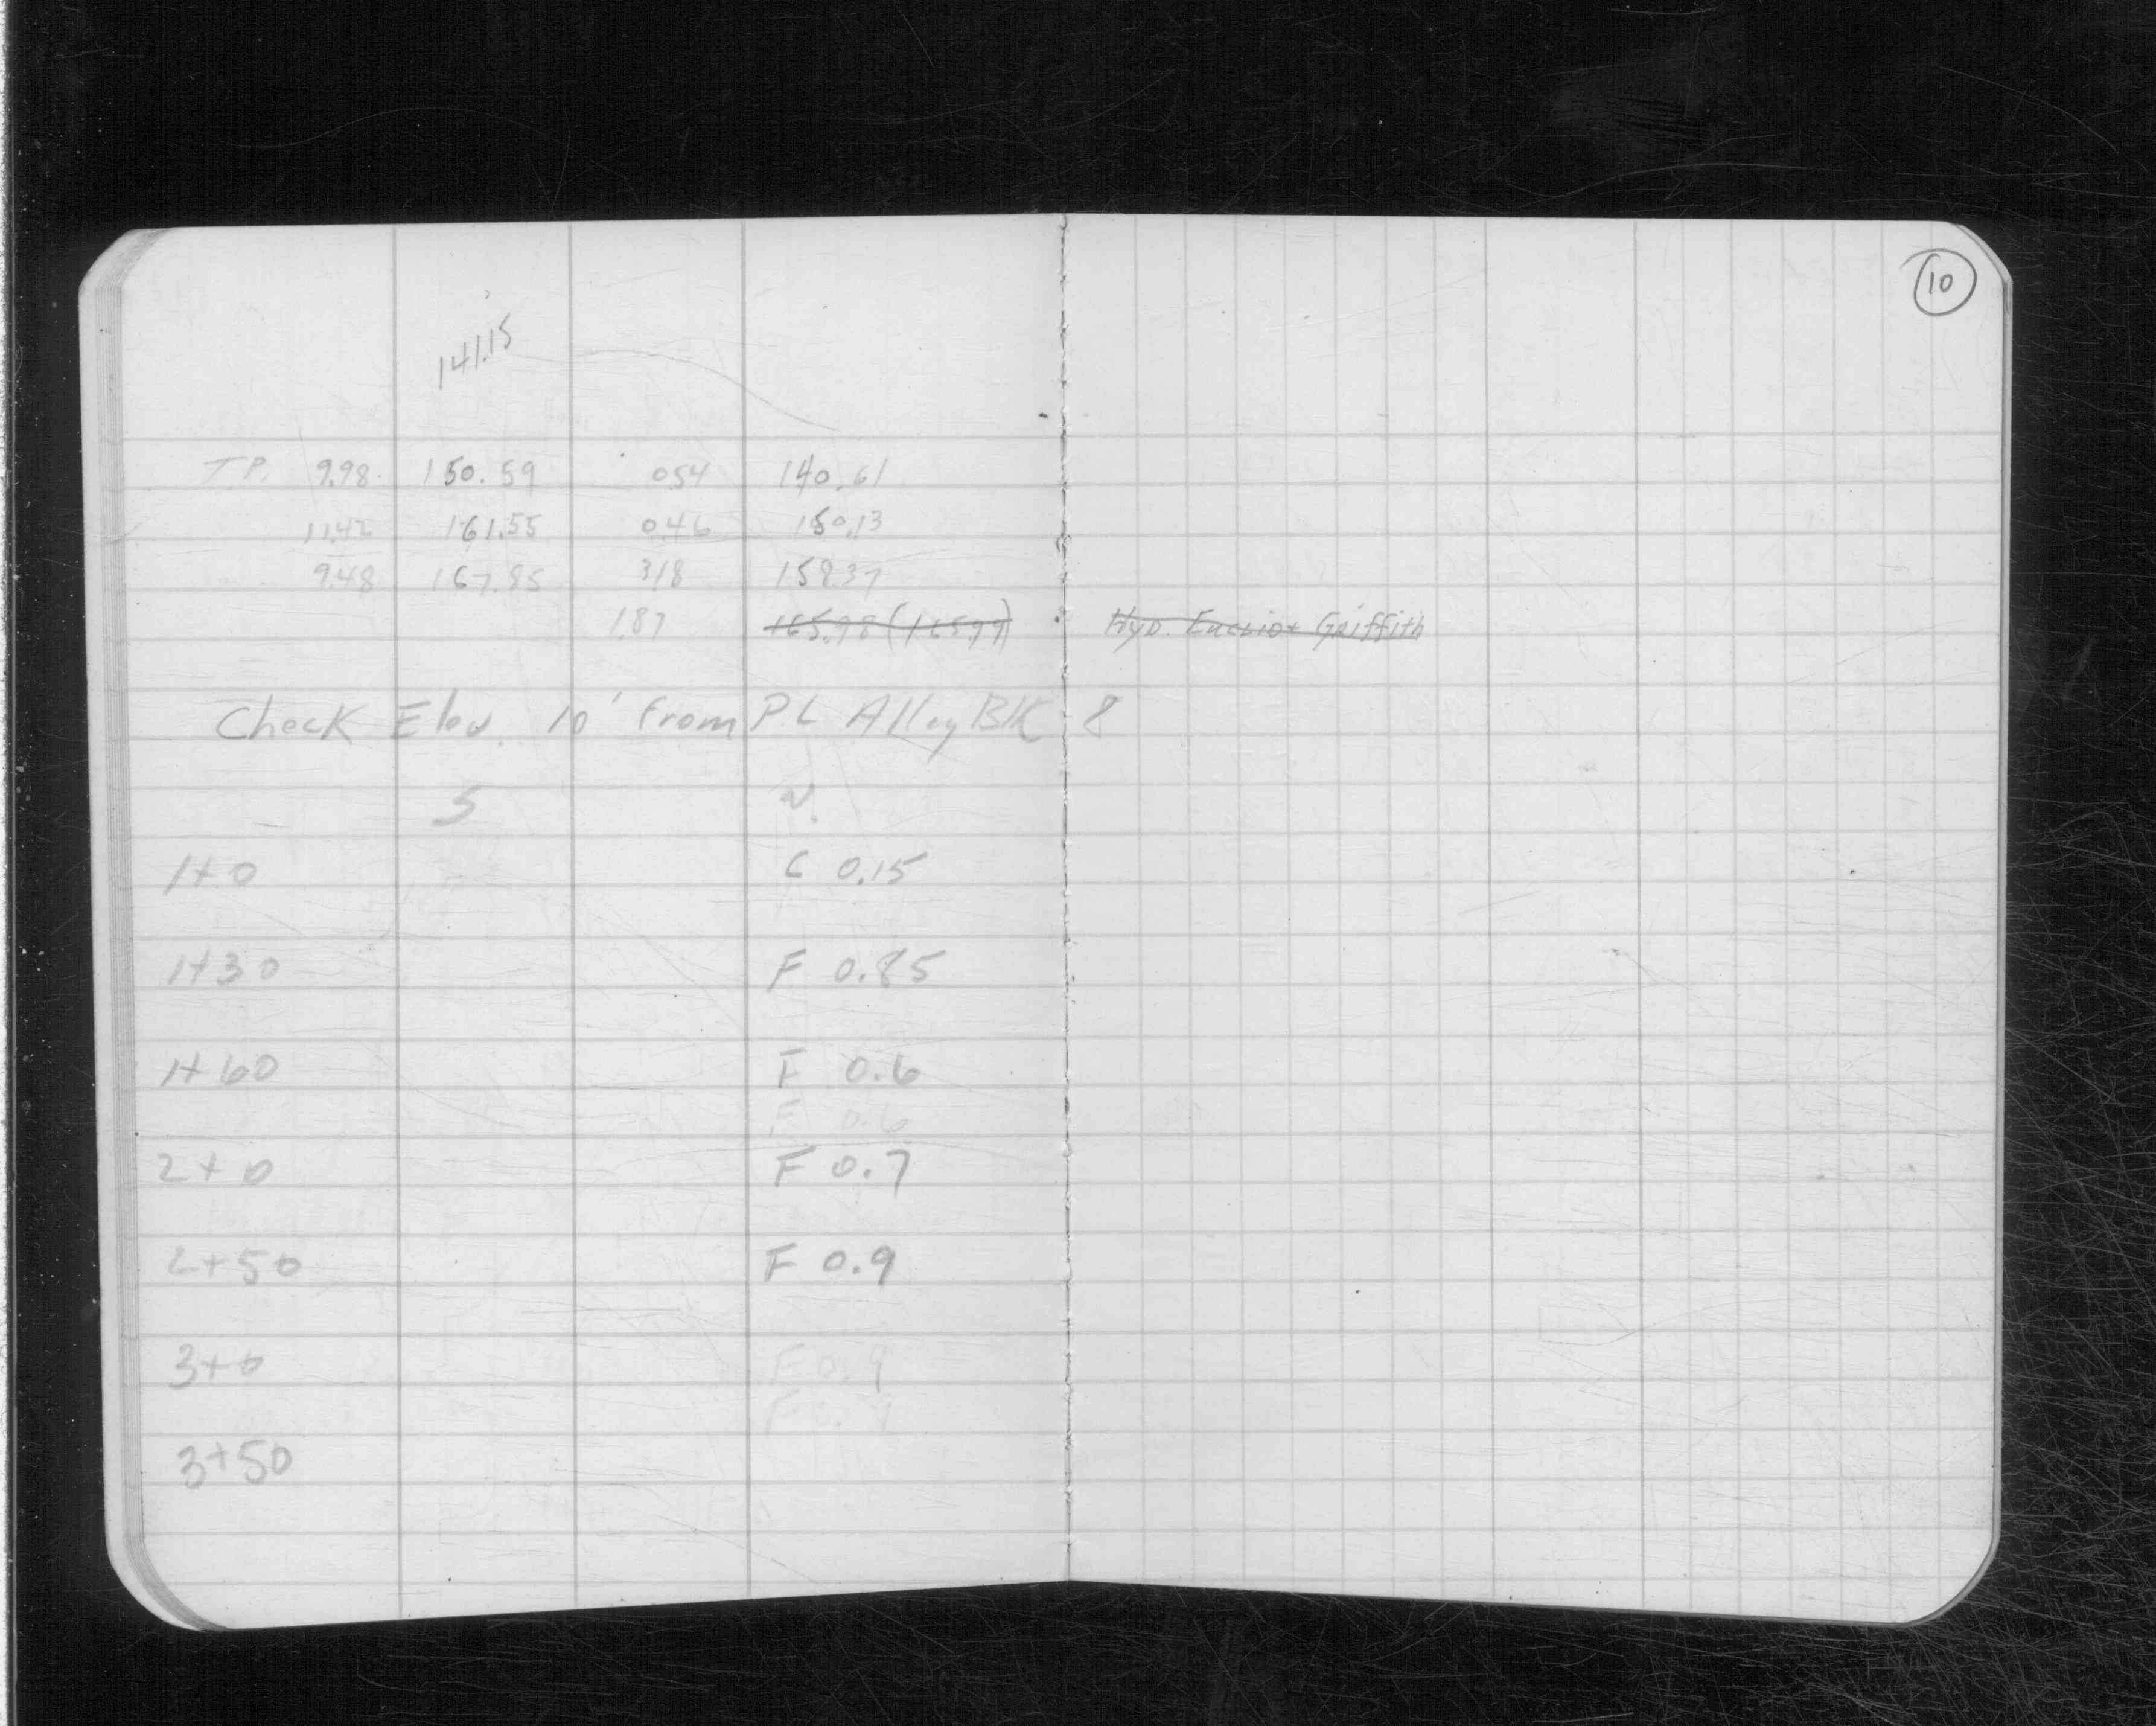 10
141.15
T.P. 9.98 150.59 0.54 140.61
11.42 161.55 0.46 150.13
9.48 167.85 318 158.37
1.87 165.98 (165.97) Hyd. Griffith
Check Elev. 10' from PL Alley Blk 8
S N.
1+0 C 0.15
1+30 F 0.85
1+60 F 0.6
F 0.6
2+0 F 0.7
2+50 F 0.9
3+0 F 0.9
F 0.9
3+50